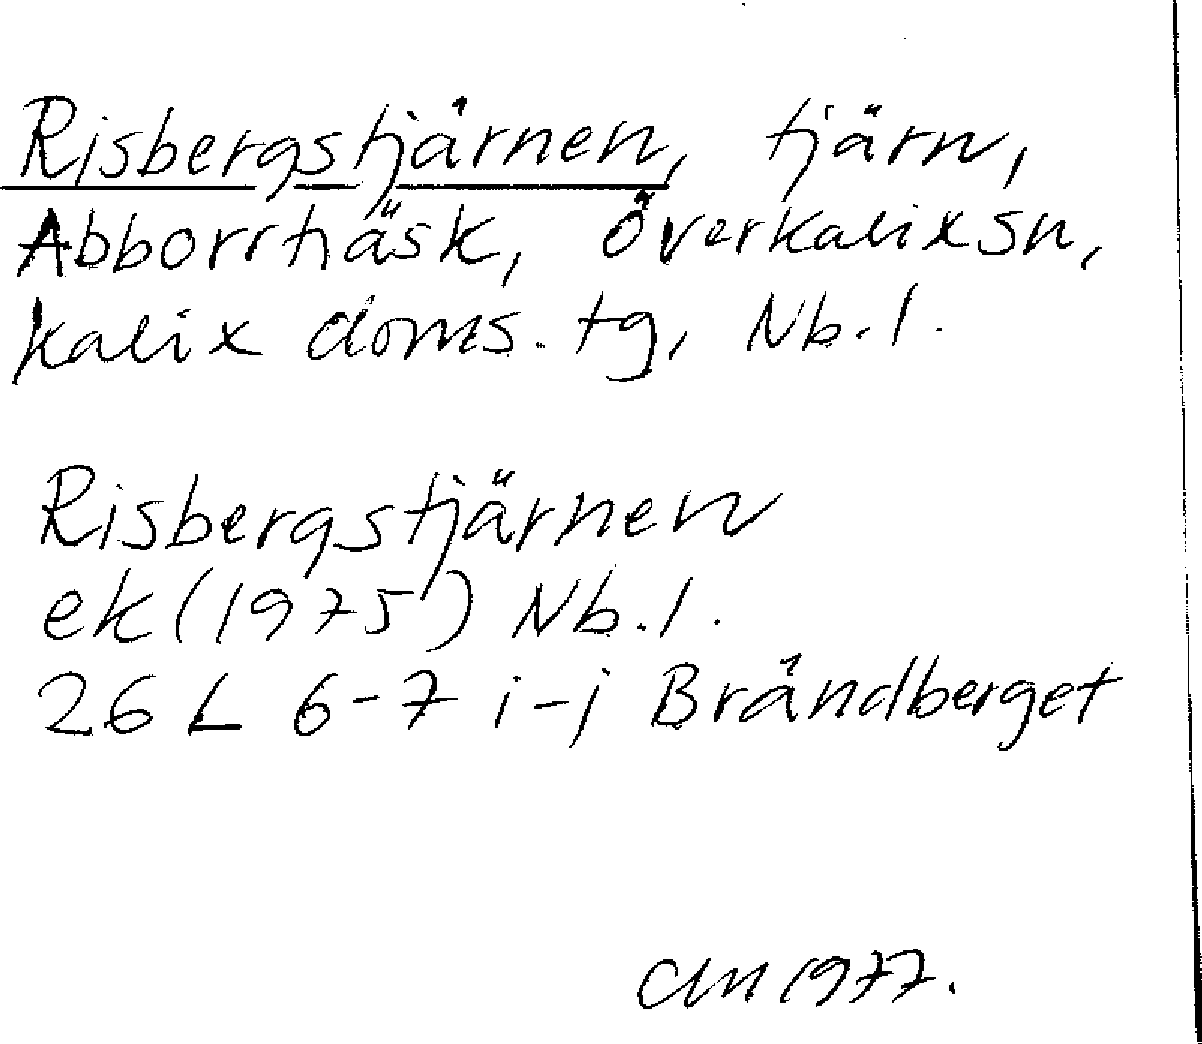 Risbergstjärnen, tjärn,
Abborrträsk, Överkalix sn,
Kalix doms. tg, Nb. l.
Risbergstjärnen
ek (1975) Nb. l.
26 L 6-7 i-j Brändberget
CM 1977.